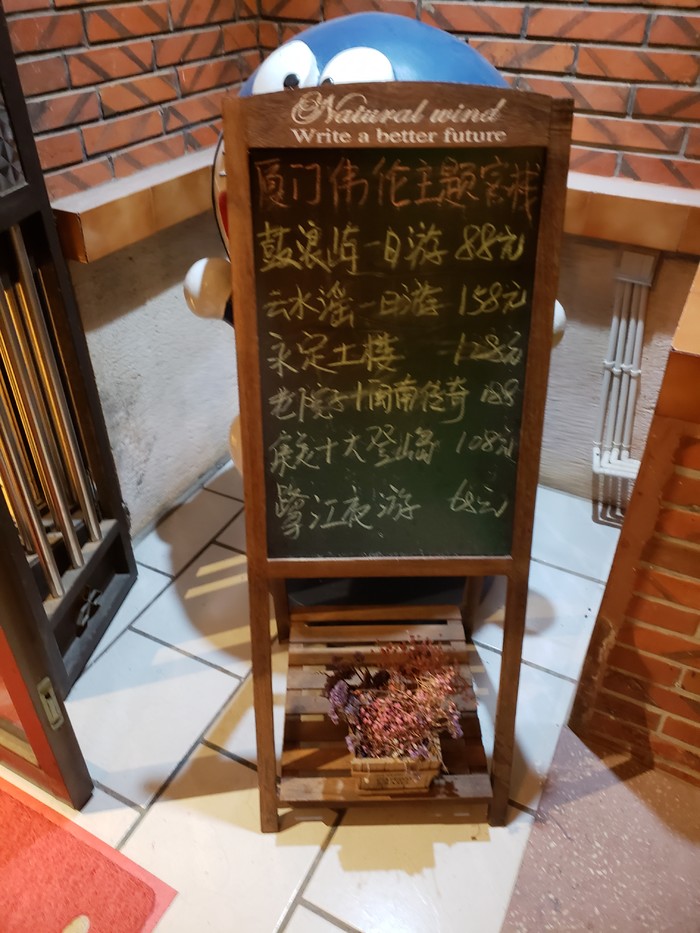 Natural wind
Write a better future
厦门伟伦主题客栈
鼓浪屿一日游 88元
云水谣一日游 158元
永定土楼 128元
老院子+闽南传奇 188
夜游 68元